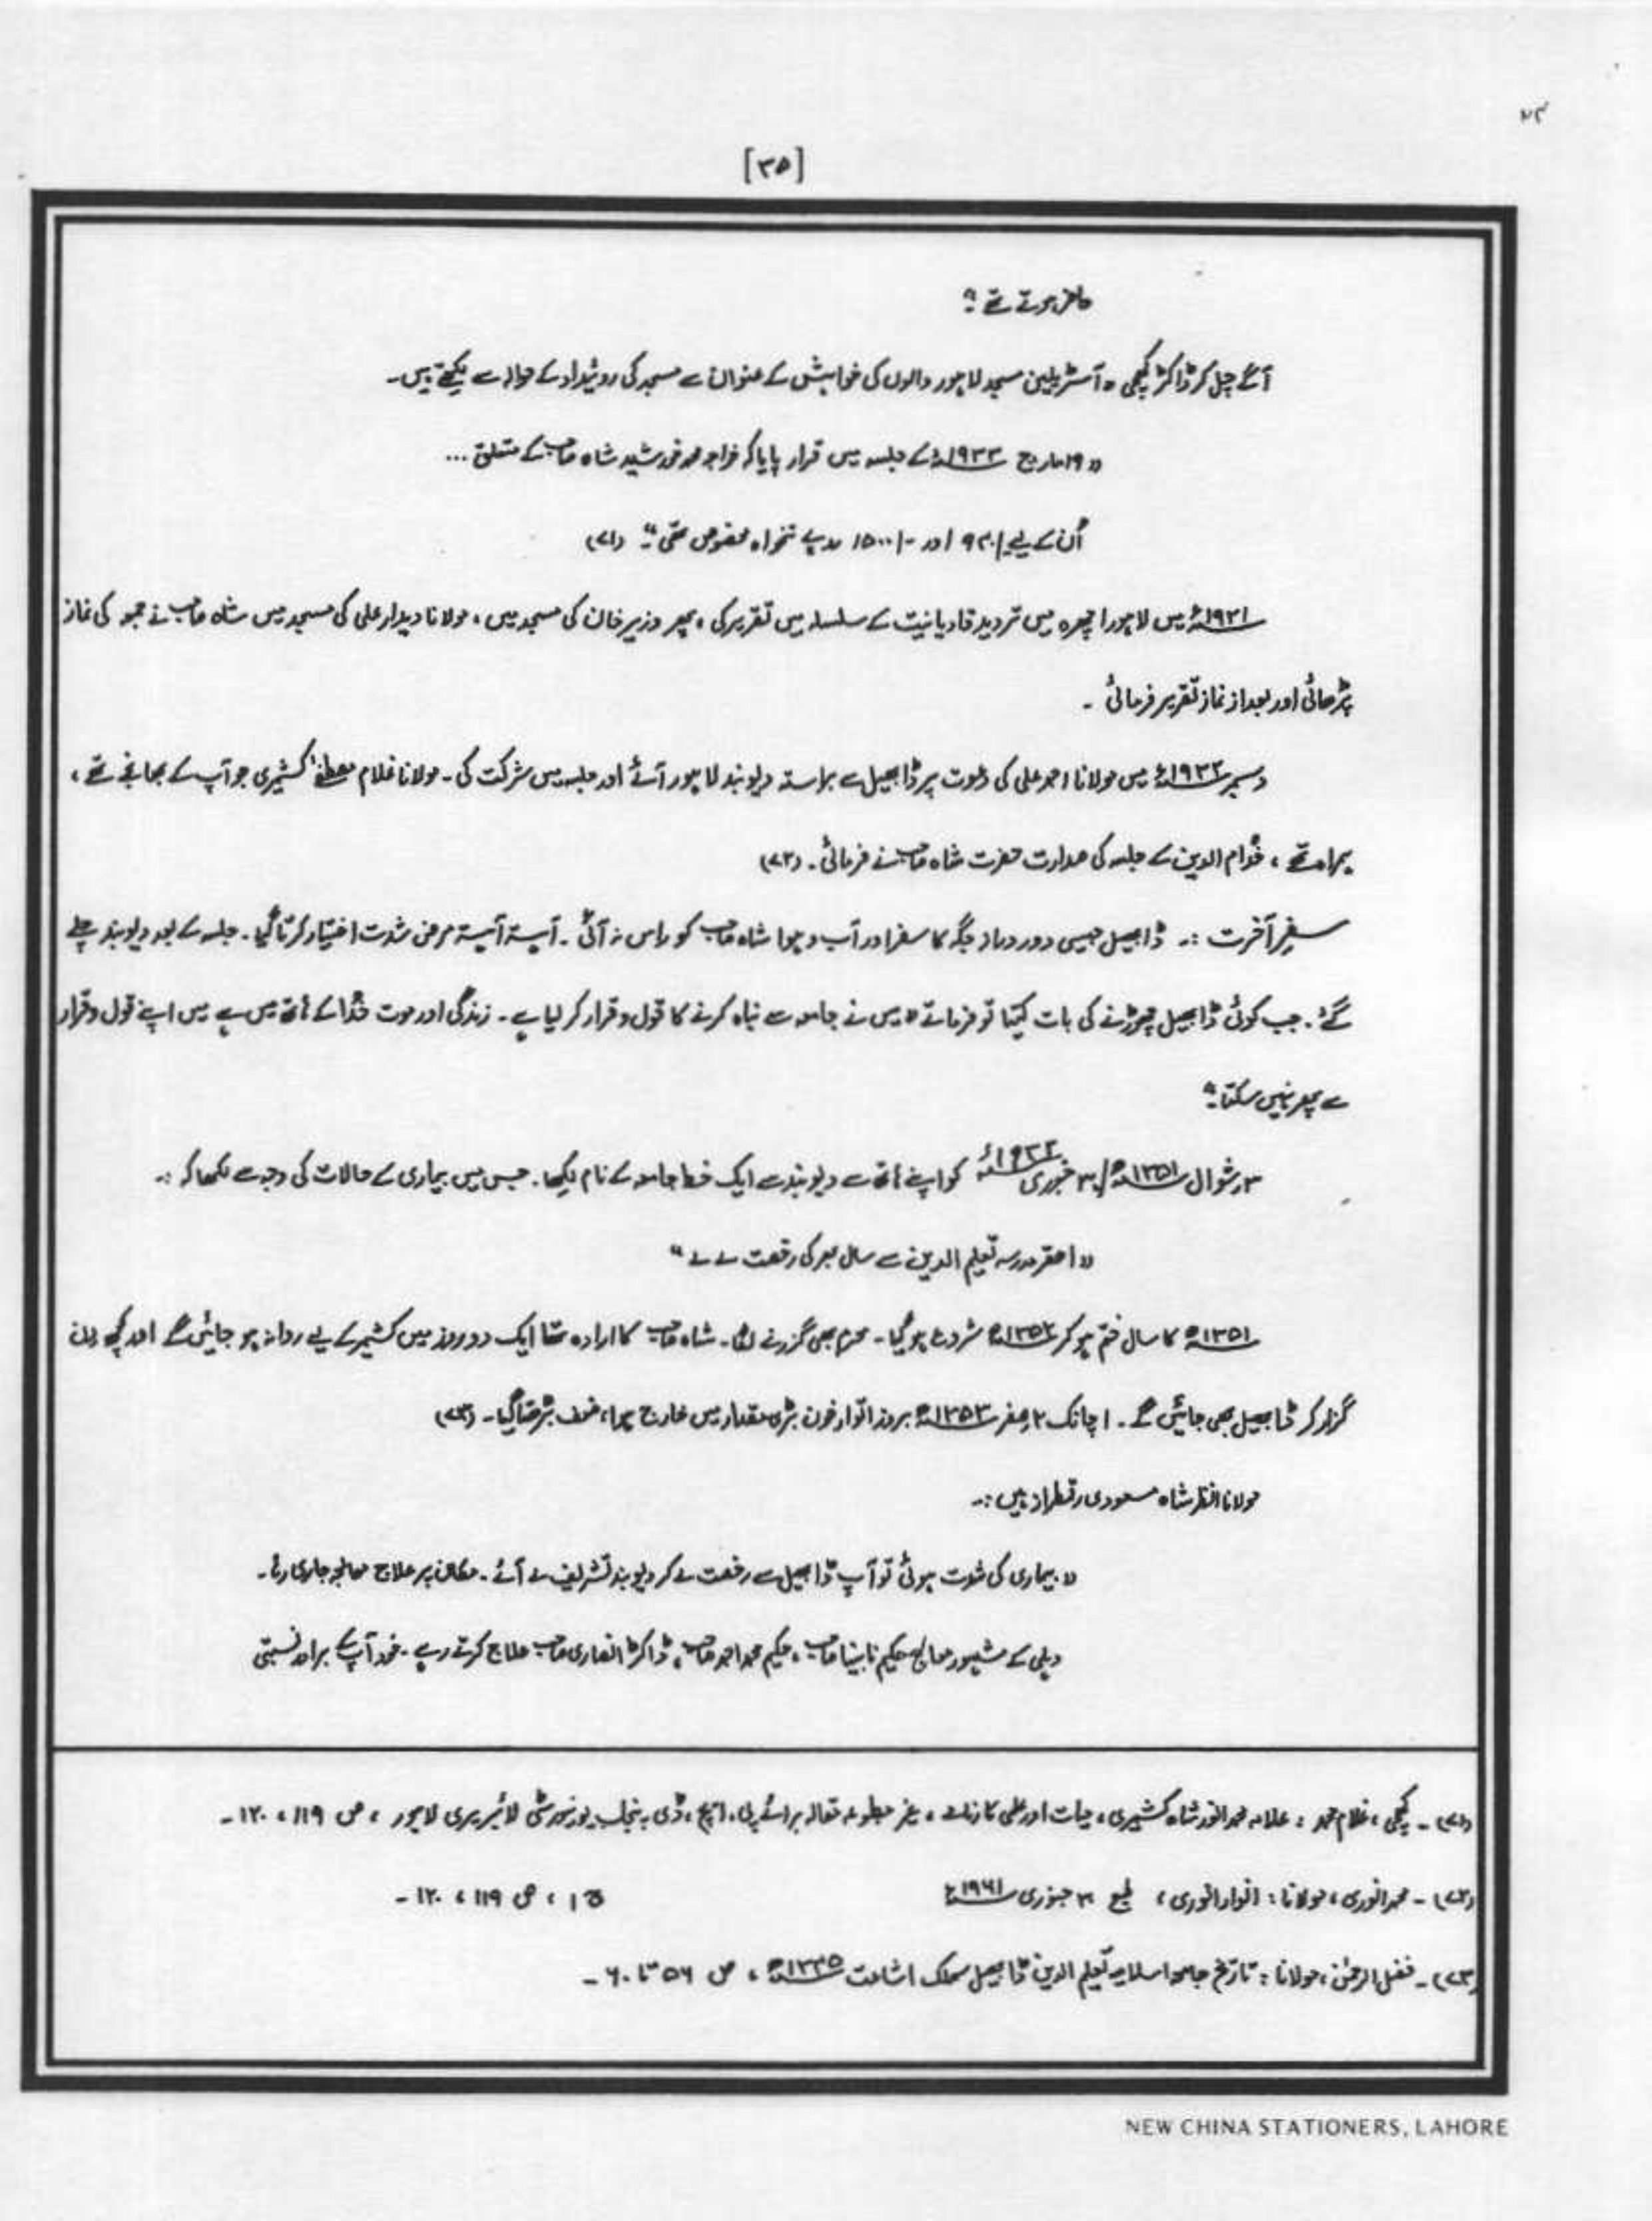 ۲۳
[۳۵]
حاضر ہوتے تھے ؂"
آگے چل کر ڈاکٹر لچھی ، آسٹریلین مسجد لاہور والوں کی خواہش کے عنوان سے مسجد کی روئیداد کے حوالہ سے لکھتے ہیں۔
"۱۹ مارچ ۱۹۳۳ء کے جلسہ میں قرار پایا کہ خواجہ محمد خورشید شاہ صاحب کے متعلق ...
اُن کے لیے اور -/۱۵۰۰ روپے تنخواہ مخصوص تھی۔" (۷۱)
۱۹۳۱ء میں لاہور اچھرہ میں تردید قادیانیت کے سلسلہ میں تقریر کی ، پھر وزیر خان کی مسجد میں ، مولانا دیدار علی کی مسجد میں شاہ صاحب نے جمعہ کی نماز
پڑھائی اور بعد از نماز تقریر فرمائی ۔
دسمبر ۱۹۳۲ء میں مولانا احمد علی کی دعوت پر ڈابھیل سے براستہ دیوبند لاہور آئے اور جلسہ میں شرکت کی ۔ مولانا غلام مصطفےٰ کشمیری جو آپ کے بھانجے تھے ،
ہمراہ تھے ، خُدام الدین کے جلسہ کی صدارت حضرت شاہ صاحب نے فرمائی ۔ (۷۲)
سفرِ آخرت :۔ ڈابھیل جیسی دور دراز جگہ کا سفر اور آب و ہوا شاہ صاحب کو راس نہ آئی ۔ آہستہ آہستہ مرض شدت اختیار کرتا گیا ۔ جلسہ کے بعد دیوبند چلے
گئے ۔ جب کوئی ڈابھیل چھوڑنے کی بات کہتا تو فرماتے "میں نے جامعہ سے نباہ کرنے کا قول و قرار کر لیا ہے ۔ زندگی اور موت خُدا کے ہاتھ میں ہے میں اپنے قول و قرار
سے پھر نہیں سکتا ۔"
۳ شوال ۱۳۵۱ھ / ۳۰ جنوری ۱۹۳۳ء کو اپنے ہاتھ سے دیوبند سے ایک خط جامعہ کے نام لکھا ۔ جس میں بیماری کے حالات کی وجہ سے لکھا کہ :۔
"احقر مدرسہ تعلیم الدین سے سال بھر کی رخصت لے لے"
۱۳۵۱ھ کا سال ختم ہو کر ۱۳۵۲ھ شروع ہو گیا ۔ محرم بھی گزرنے لگا ۔ شاہ صاحب کا ارادہ تھا ایک دو روز میں کشمیر کے لیے روانہ ہو جائیں گے اور کچھ دن
گزار کر ڈابھیل بھی جائیں گے ۔ اچانک ۲ صفر ۱۳۵۲ھ بروز اتوار خون بڑی مقدار میں خارج ہوا ، ضعف بڑھتا گیا ۔ (۷۳)
مولانا انظر شاہ مسعودی رقمطراز ہیں :۔
"بیماری کی شدت ہوئی تو آپ ڈابھیل سے رخصت لے کر دیوبند تشریف لے آئے ۔ مکان پر علاج معالجہ جاری رہا ۔
دہلی کے مشہور معالج حکیم نابینا صاحب ، حکیم محمد احمد صاحب ، ڈاکٹر انصاری صاحب علاج کرتے رہے ۔ خود آپ کے برادر نسبتی
(۷۱) ۔ لچھی ، غلام محمد : علامہ محمد انور شاہ کشمیری ، حیات اور علمی کارنامے ، غیر مطبوعہ مقالہ برائے پی ، ایچ ، ڈی پنجاب یونیورسٹی لائبریری لاہور ، ص ۱۱۹ ، ۱۲۰ ۔
(۷۲) ۔ محمد انوری ، مولانا : انوار انوری ، طبع ۳ جنوری ۱۹۶۱ء ج ۱ ، ص ۱۱۹ ، ۱۲۰ ۔
(۷۳) ۔ فضل الرحمٰن ، مولانا : تاریخ جامعہ اسلامیہ تعلیم الدین ڈابھیل سملک اشاعت ۱۳۳۵ھ ، ص ۵۶ تا ۶۰ ۔
NEW CHINA STATIONERS, LAHORE